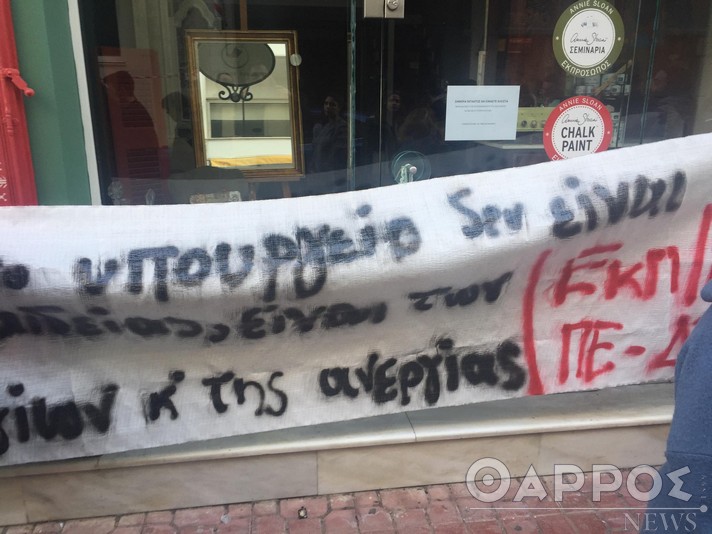 ANNIE SLOAN
Annie Sloan
ΣΕΜΙΝΑΡΙΑ
ΕΚΠΡΟΣΩΠΟΣ
ANNIE SLOAN
Annie Sloan
CHALK
PAINT
υπουργείο δεν είναι
αιδείας, είναι των (ΕΚΠ/
γίτων κ' της ανεργίας ΠΕ-Δ
ΘΑΡΡΟΣ
NEWS